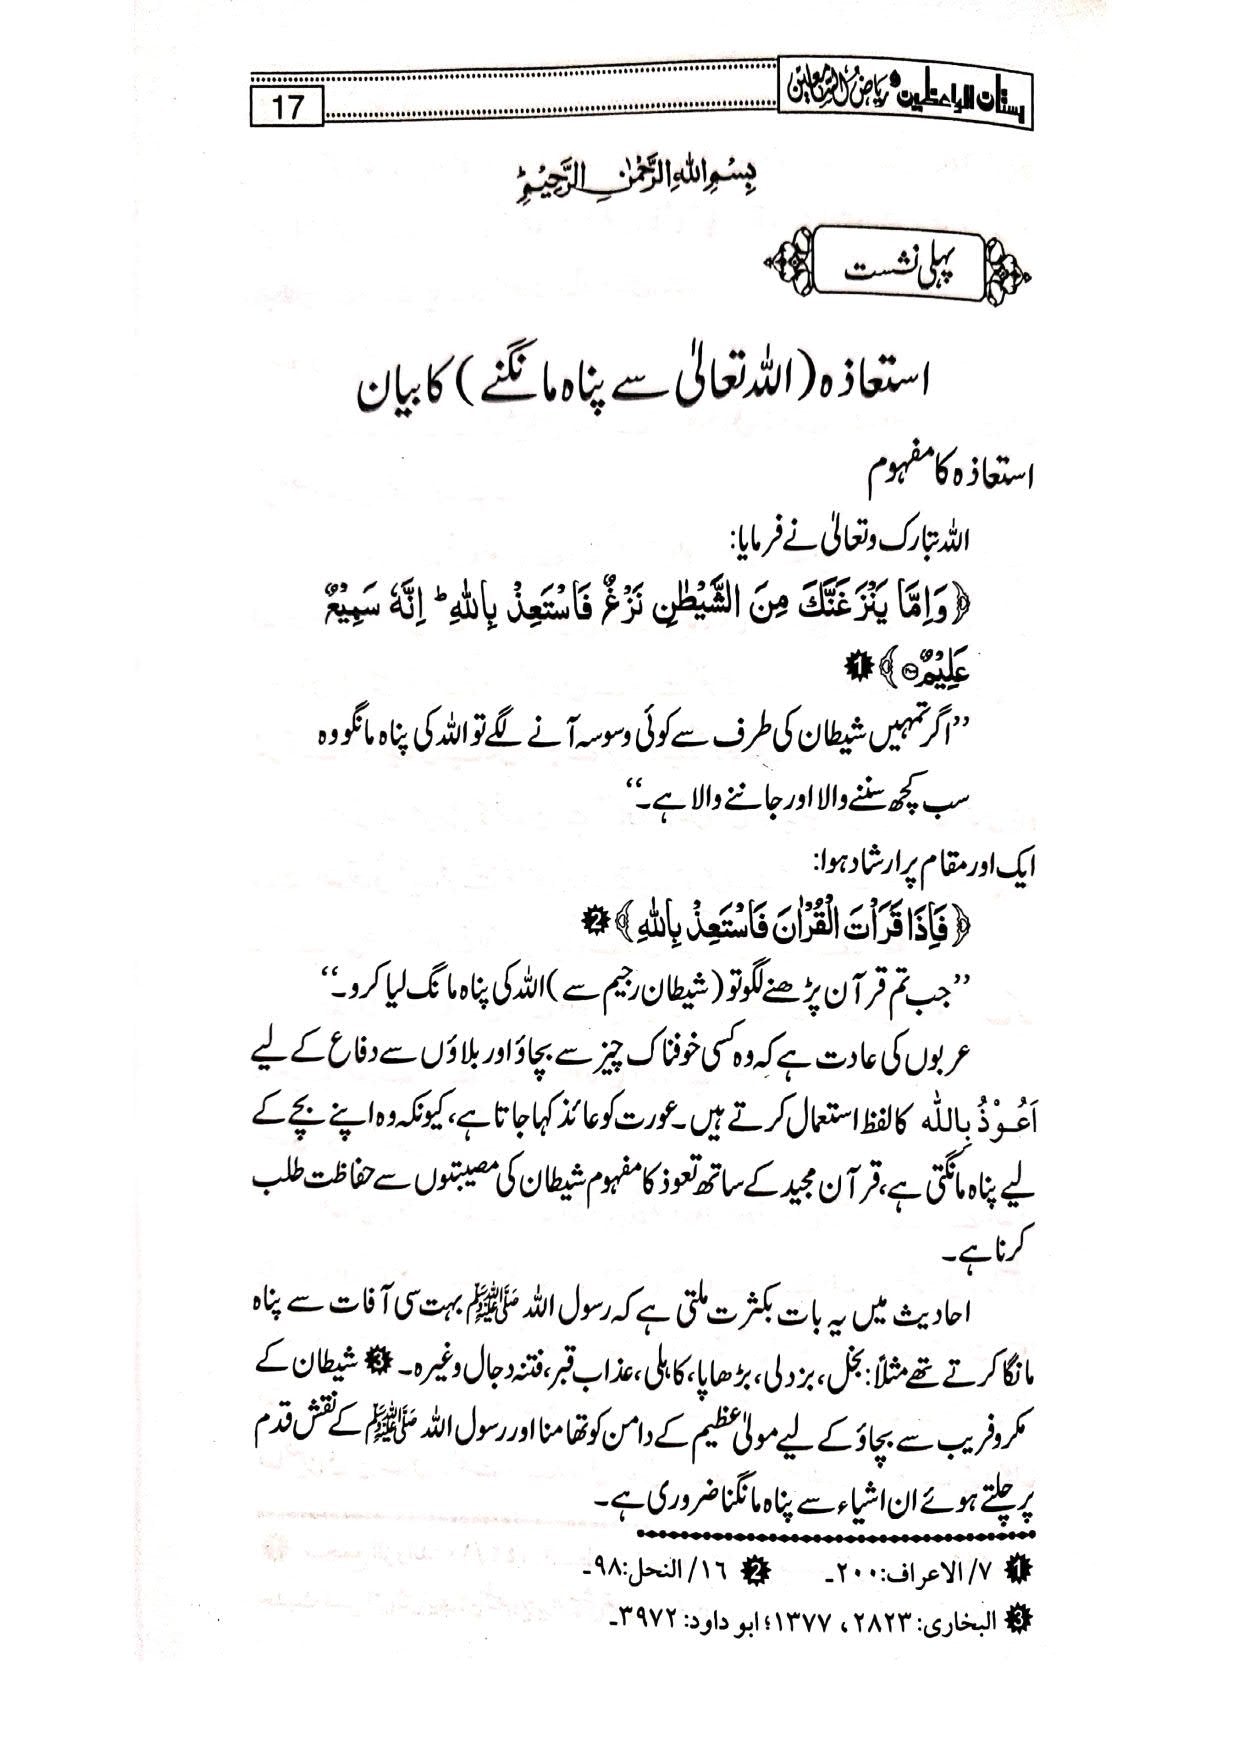 بستان الواعظین و ریاض السامعین
17
بِسْمِ اللهِ الرَّحْمٰنِ الرَّحِیْمِ
پہلی نشست
استعاذہ (اللہ تعالیٰ سے پناہ مانگنے) کا بیان
استعاذہ کا مفہوم
اللہ تبارک وتعالیٰ نے فرمایا:
﴿وَاِمَّا یَنْزَغَنَّكَ مِنَ الشَّیْطٰنِ نَزْغٌ فَاسْتَعِذْ بِاللهِ ؕ اِنَّهٗ سَمِیْعٌ
عَلِیْمٌ ۝۲۰۰﴾ ❶
’’اگر تمہیں شیطان کی طرف سے کوئی وسوسہ آنے لگے تو اللہ کی پناہ مانگو وہ
سب کچھ سننے والا اور جاننے والا ہے۔‘‘
ایک اور مقام پر ارشاد ہوا:
﴿فَاِذَا قَرَاْتَ الْقُرْاٰنَ فَاسْتَعِذْ بِاللهِ﴾ ❷
’’جب تم قرآن پڑھنے لگو تو (شیطان رجیم سے) اللہ کی پناہ مانگ لیا کرو۔‘‘
عربوں کی عادت ہے کہ وہ کسی خوفناک چیز سے بچاؤ اور بلاؤں سے دفاع کے لیے
اَعُوْذُ بِاللہ کا لفظ استعمال کرتے ہیں۔ عورت کو عائذ کہا جاتا ہے، کیونکہ وہ اپنے بچے کے
لیے پناہ مانگتی ہے، قرآن مجید کے ساتھ تعوذ کا مفہوم شیطان کی مصیبتوں سے حفاظت طلب
کرنا ہے۔
احادیث میں یہ بات بکثرت ملتی ہے کہ رسول اللہ ﷺ بہت سی آفات سے پناہ
مانگا کرتے تھے مثلاً: بخل، بزدلی، بڑھاپا، کاہلی، عذاب قبر، فتنہ دجال وغیرہ۔ ❸ شیطان کے
مکروفریب سے بچاؤ کے لیے مولیٰ عظیم کے دامن کو تھامنا اور رسول اللہ ﷺ کے نقش قدم
پر چلتے ہوئے ان اشیاء سے پناہ مانگنا ضروری ہے۔
❶ ۷/ الاعراف: ۲۰۰۔ ❷ ۱۶/ النحل: ۹۸۔
❸ البخاری: ۲۸۲۳، ۱۳۷۷؛ ابو داود: ۳۹۷۲۔